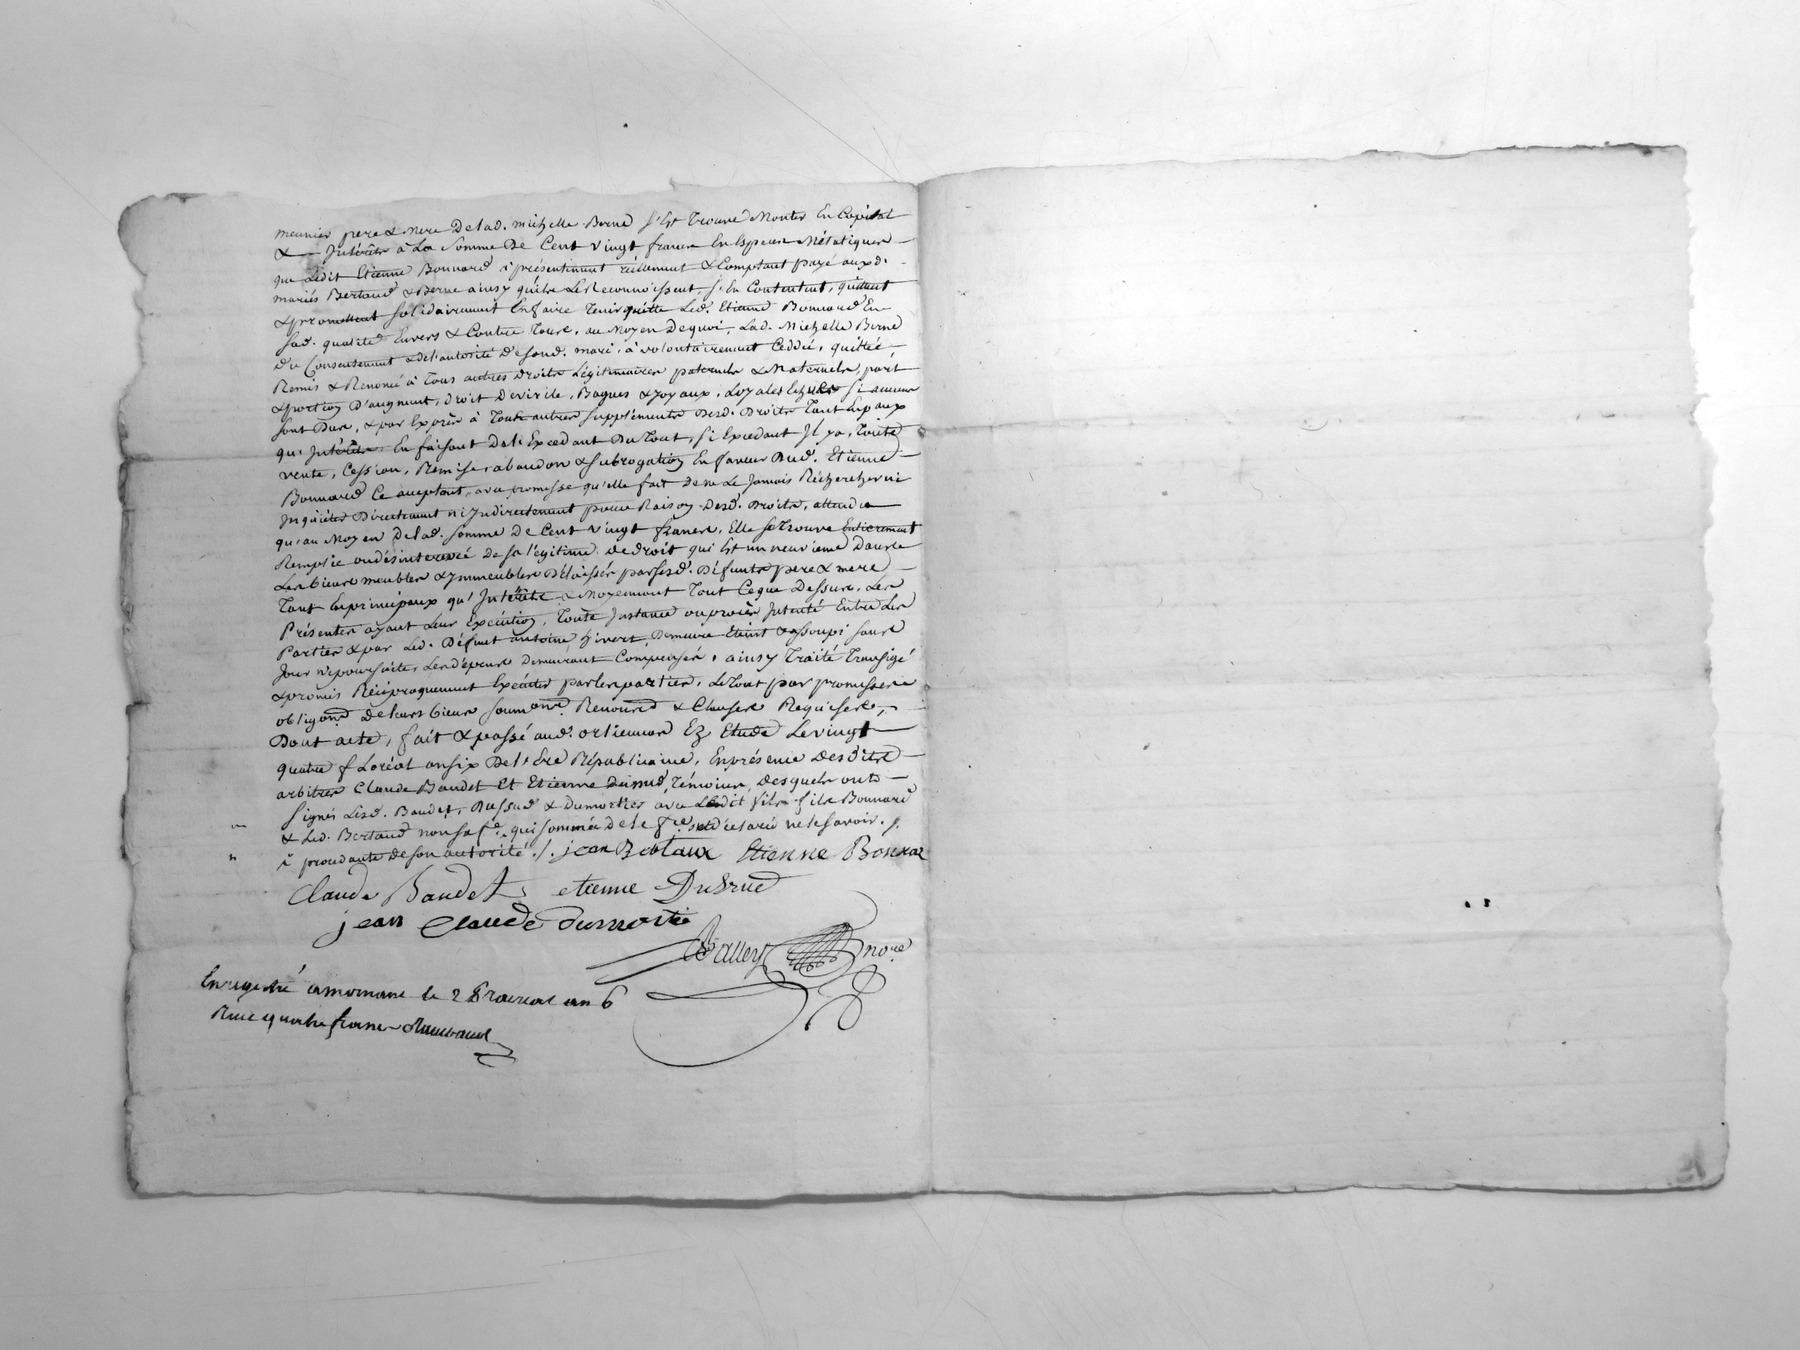 meunier pere & mere de lad. michelle Berne s'est trouvé monter en capital
& Intérêts à la somme de cent vingt francs en especes métaliques
que ledit Etienne Bonnard à présentement réellement & comptant payé auxd.
mariés Bertaud & Berne ainsy qu'ils le reconnoissent, s'en contentent, quittent
& promettent solidairement en faire tenir quitte led. Etienne Bonnard en
sad. qualité envers & contre tous, au moyen de quoi, lad. Michelle Berne
du consentement & de l'autorité de sond. mari, à volontairement ceddé, quitté,
Remis & Renoncé à tous autres droits légitimaires paternels & maternels, part
& portion d'augment, droit de virile, Bagues & joyaux, loyales échutes si aucunes
sont dues, & par exprès à toute autres supplements desd. droits tant en paux
qu'Intérêts. En faisant de l'Excedant du tout, si excedant Il y a, toute
vente, cession, Remise, abandon & subrogation en faveur dud. Etienne
Bonnard ce acceptant, avec promesse qu'elle fait de ne le jamais Réchercher ni
Inquiéter directement ni Indirectement pour raison desd. droits, attendu
qu'au moyen de lad. somme de cent vingt francs, Elle se trouve entierement
Remplie ou désinteressé de sa légitime de droit qui est un neuvieme dans
les biens meubles & Immeubles délaissés par sesd. défunts pere & mere
tant en principaux qu'Intérêts & moyennant tout ce que dessus, les
Présentes ayant leur exécution, toute Instance ou procès Intenté entre les
Parties & par led. défunt antoine hivert demeure éteint & assoupi sans
jour ni poursuites, les dépens demeurant compensés, ainsy traité transigé
& promis Réciproquement exécuter par les parties, le tout par promesses
obligond de leurs biens soumond Renoncd & clauses Requises,
Dont acte, fait & passé aud. orlienas Ez Etude le vingt
quatre floréal an six de l'Ere Républicaine, en présence desdits
arbitres Claude Baudet et Etienne témoins, desquels ont
signés lesd. Baudet, & Dumortier avec ledit fils Bonnard
& led. Bertaud non sad. fe qui sommée de le fre a déclaré ne le savoir ./.
à procédante de son autorité ./. jean Bertaux Etienne Bonnar
Claude Baudet etienne
jean Claude dumortie
Balley nore
Enregistré a mornant le 28 floreal an 6
Reçu quatre francs